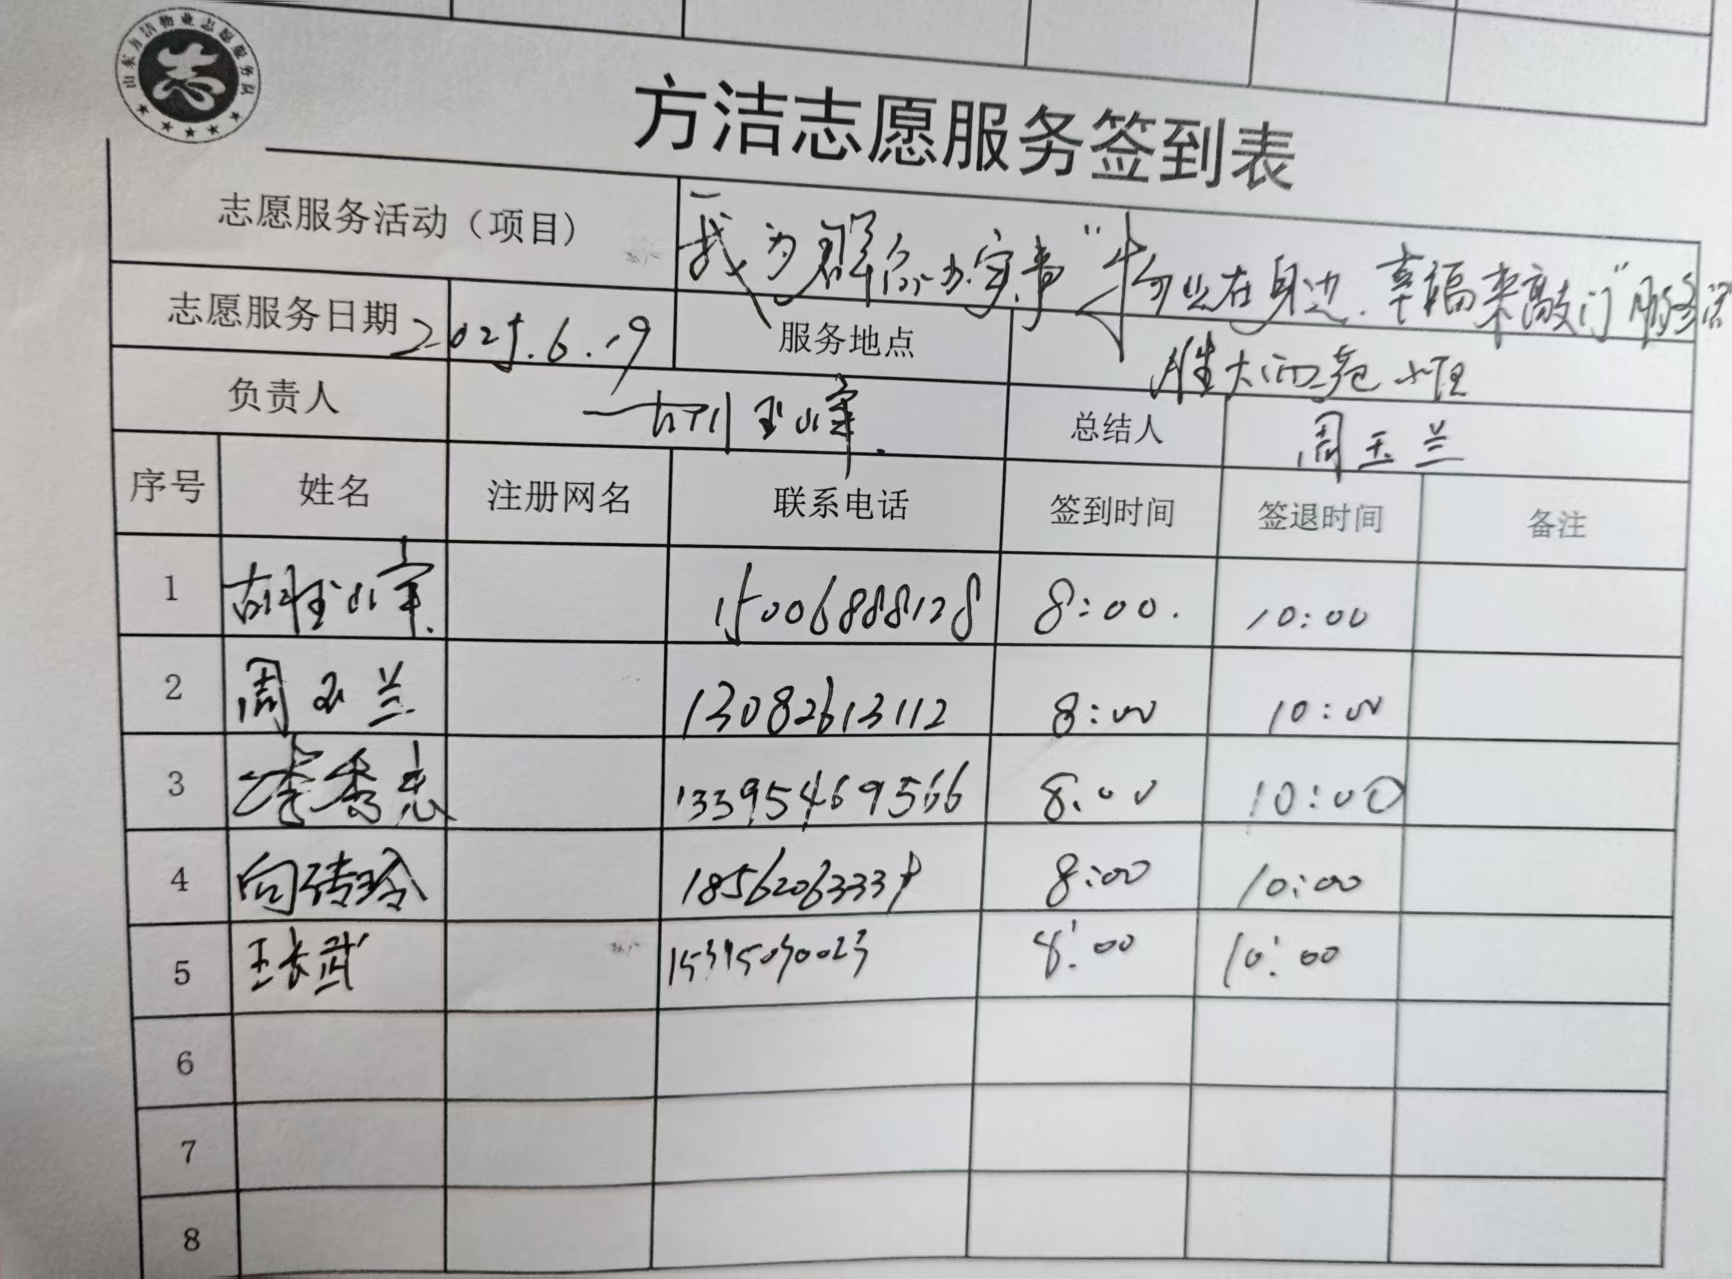 山东方洁物业志愿服务队
方洁志愿服务签到表
志愿服务活动（项目） 我为群众办实事“物业在身边.幸福来敲门”服务
志愿服务日期 2025.6.19 服务地点 胜大西苑小区
负责人 总结人 周玉兰
序号 姓名 注册网名 联系电话 签到时间 签退时间 备注
1 15006888128 8:00. 10:00
2 周玉兰 13082613112 8:00 10:00
3 李秀志 13395469566 8:00 10:00
4 向 玲 8:00 10:00
5 王长武 8:00 10:00
6
7
8